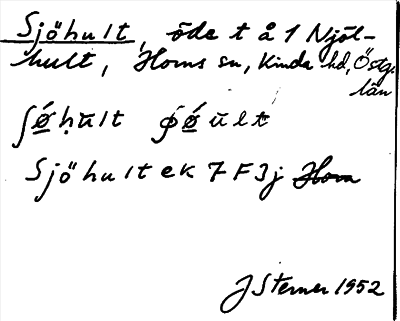 Sjöhult, öde t å 1 Njöl-
hult, Horns sn, Kinda hd, Östg.
län
Sjöhult ek 7 F 3j Horn
J Sterner 1952